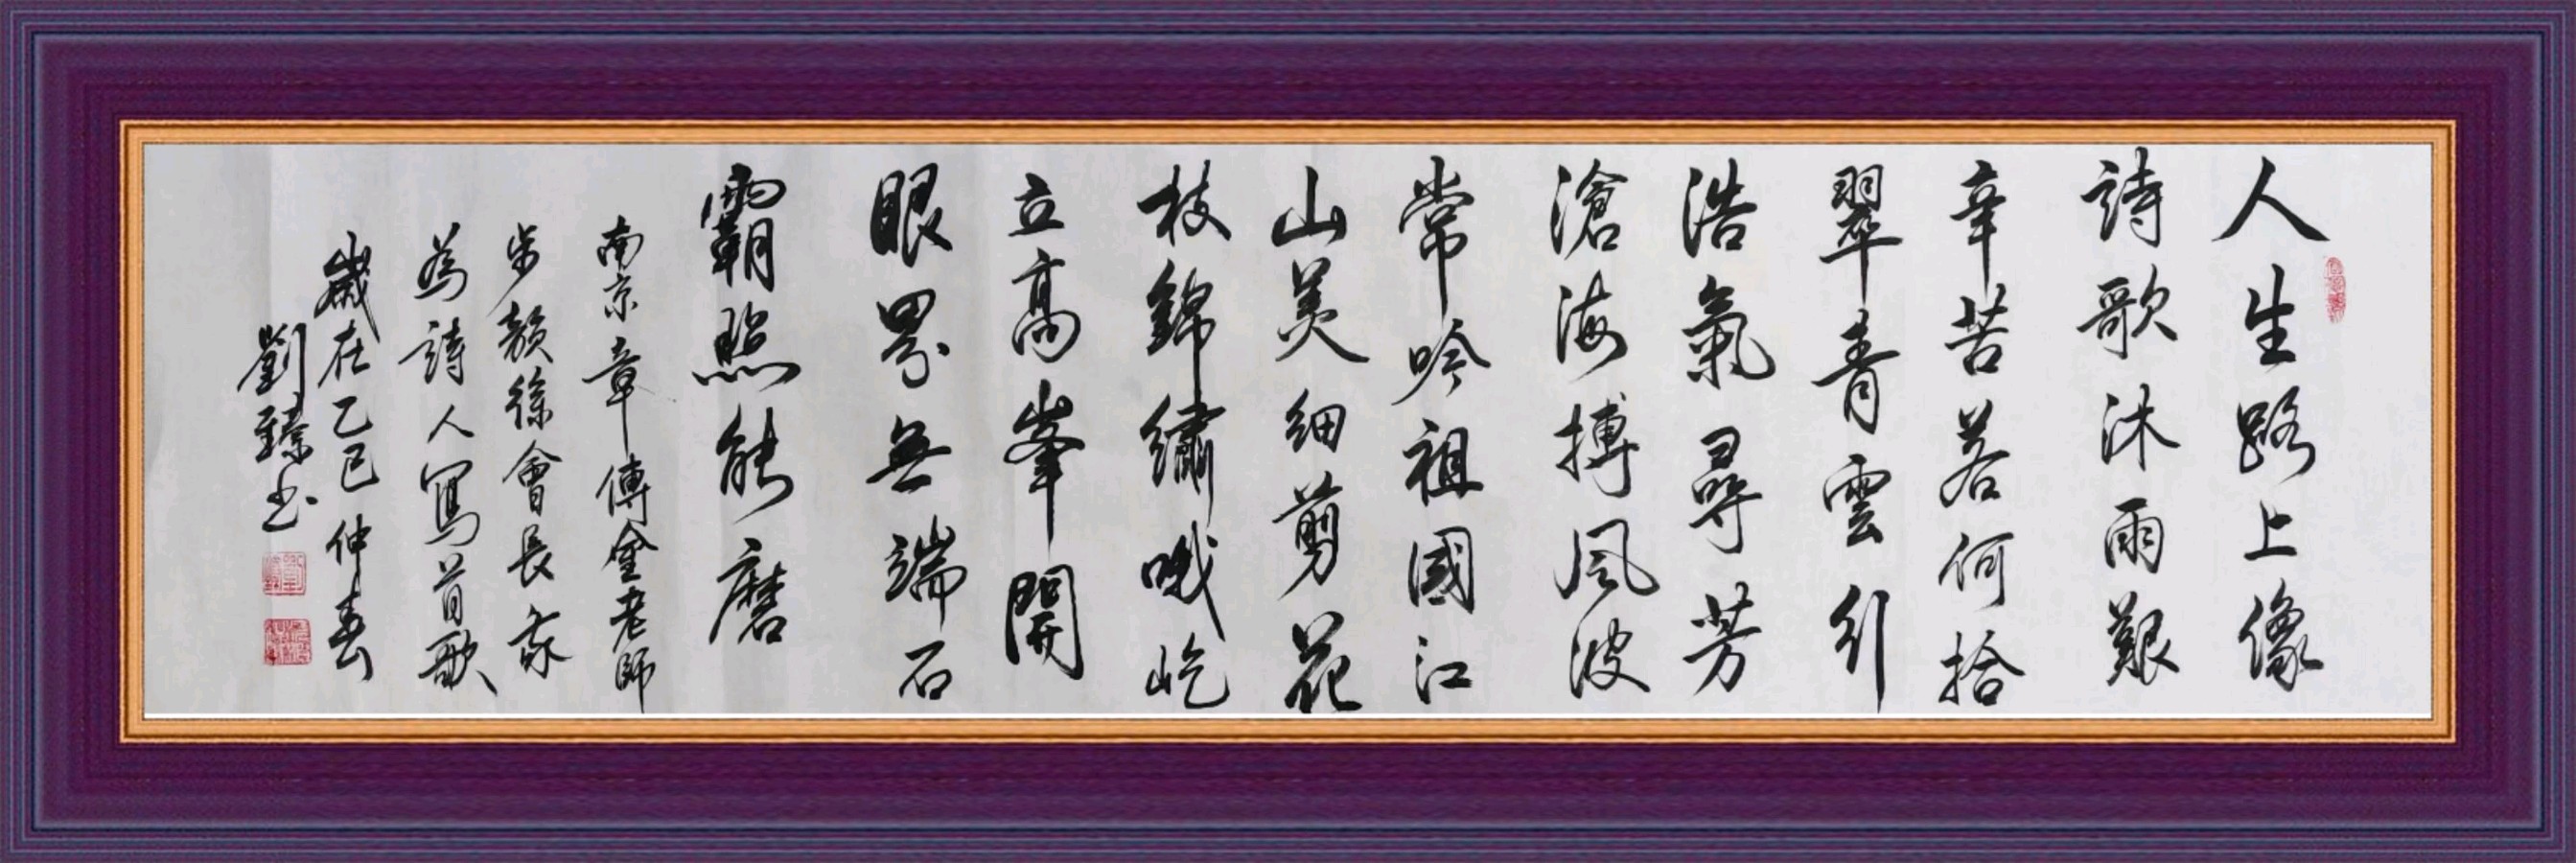 人生路上像
詩歌沐雨艱
辛苦若何拾
翠青雲引
浩氣尋芳
滄海搏風波
常吟祖國江
山美細剪花
枝錦繡哦屹
立高峯開
眼界無端石
霸照能磨
南京章傳金老師
步韻徐會長家
為詩人寫首歌
歲在乙巳仲春
劉臻书